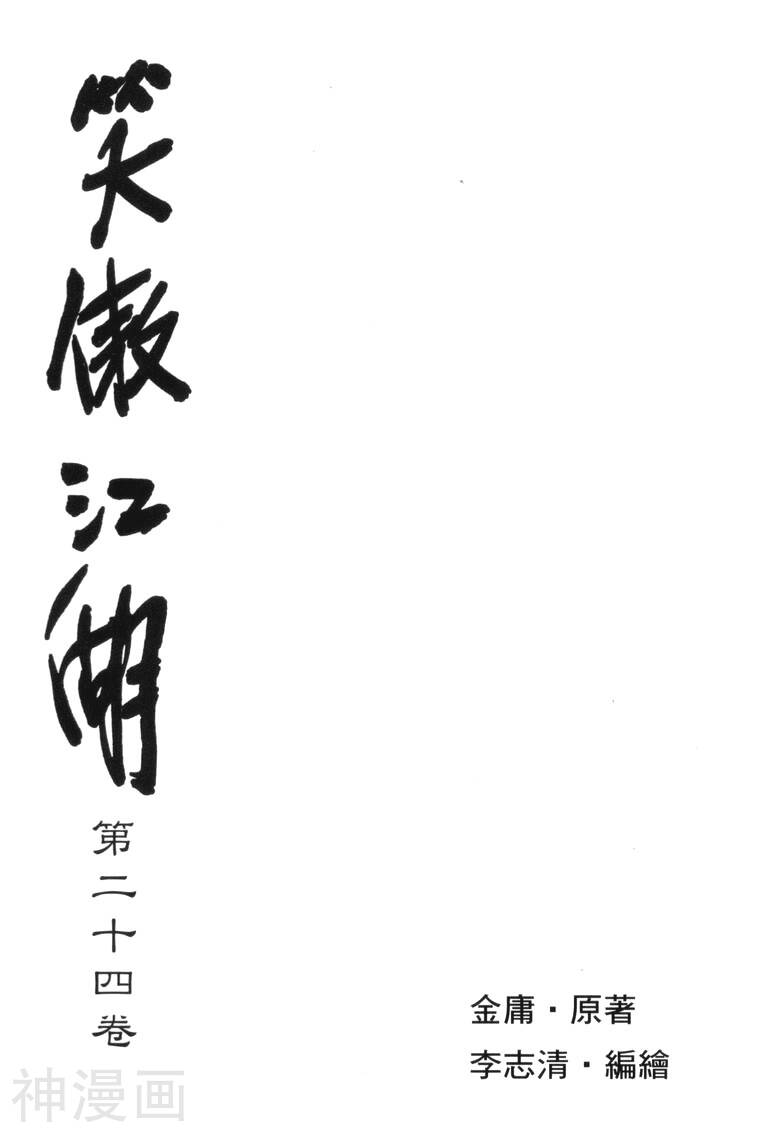 笑傲江湖
第二十四卷
金庸·原著
李志清·編繪
神漫画